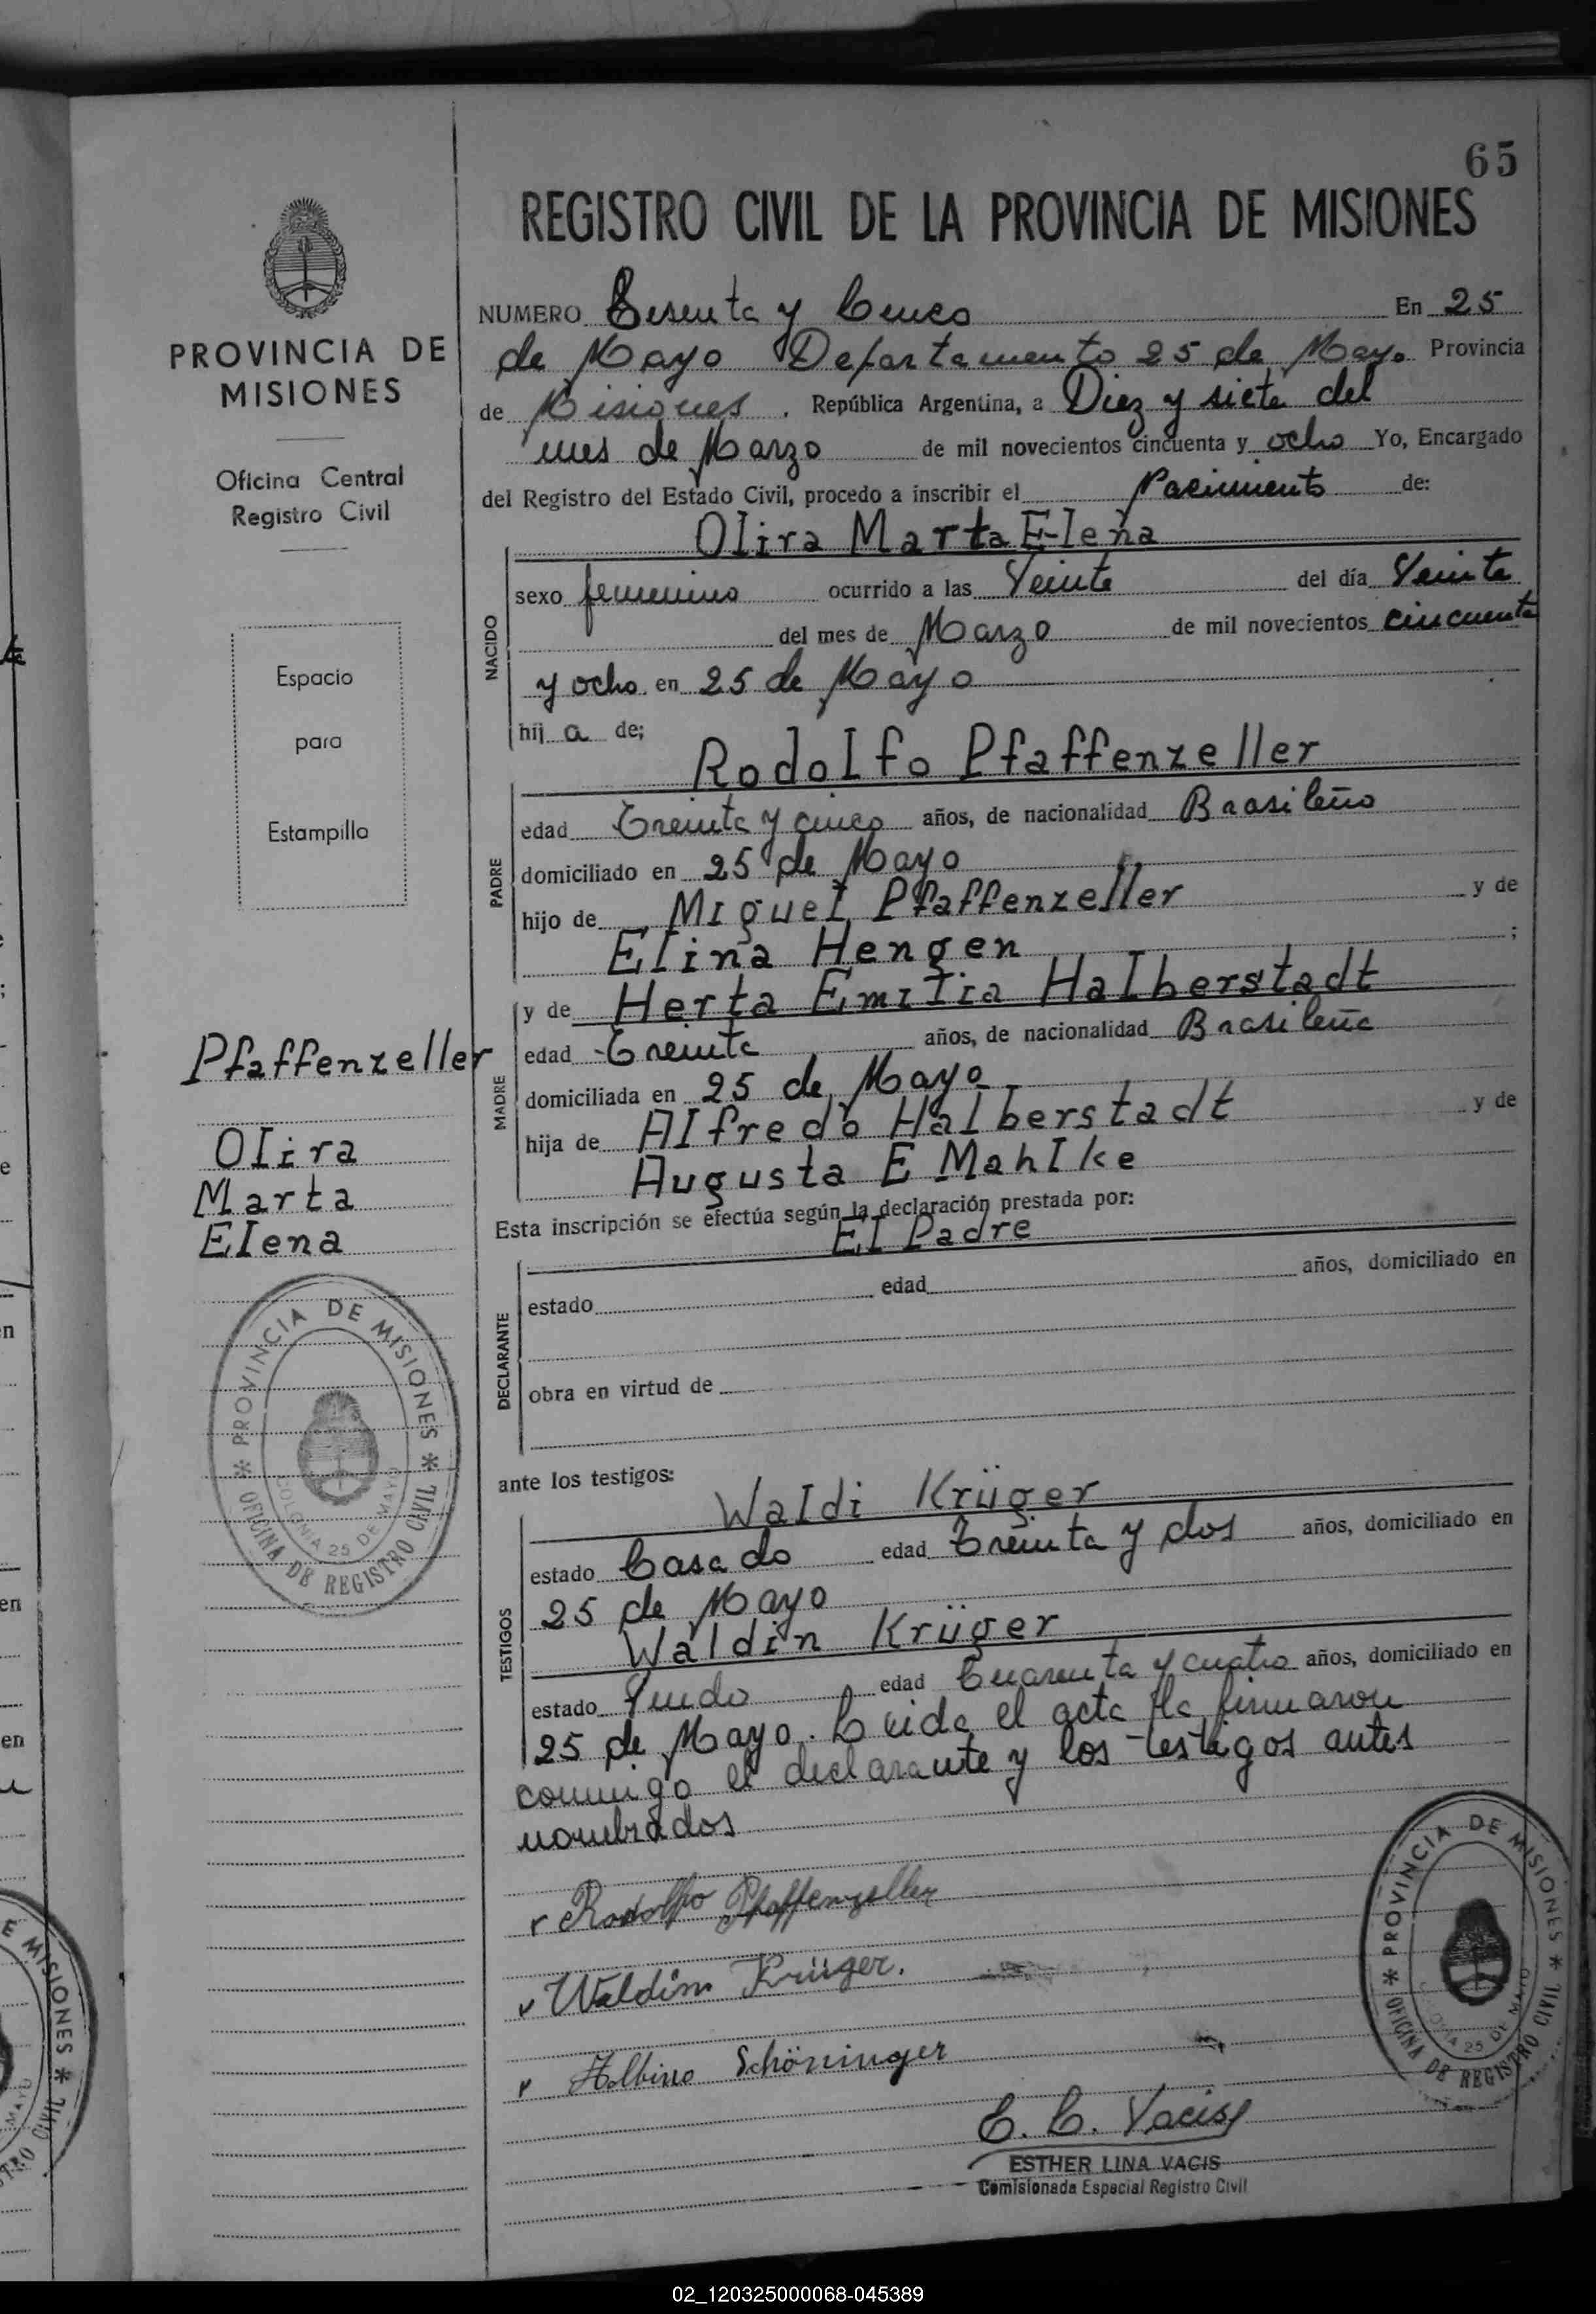 65
REGISTRO CIVIL DE LA PROVINCIA DE MISIONES
PROVINCIA DE
MISIONES
Oficina Central
Registro Civil
Espacio
para
Estampilla
NUMERO Sesenta y Cinco En 25
de Mayo Departamento 25 de Mayo Provincia
de Misiones. República Argentina, a Diez y siete del
mes de Marzo de mil novecientos cincuenta y ocho Yo, Encargado
del Registro del Estado Civil, procedo a inscribir el Nacimiento de:
Olira Marta Elena
NACIDO
sexo femenino ocurrido a las Veinte del día Veinte
del mes de Marzo de mil novecientos cincuenta
y ocho en 25 de Mayo
hij a de;
Rodolfo Pfaffenzeller
PADRE
edad Treinta y cinco años, de nacionalidad Brasileño
domiciliado en 25 de Mayo
hijo de Miguel Pfaffenzeller y de
Elina Hengen ;
y de Herta Emilia Halberstadt
MADRE
edad Treinta años, de nacionalidad Brasileña
domiciliada en 25 de Mayo
hija de Alfredo Halberstadt y de
Augusta E Mahlke
Pfaffenzeller
Olira
Marta
Elena
Esta inscripción se efectúa según la declaración prestada por:
El Padre
DECLARANTE
estado edad años, domiciliado en
obra en virtud de
ante los testigos:
Waldi Krüger
TESTIGOS
estado Casado edad Treinta y dos años, domiciliado en
25 de Mayo
Waldin Krüger
estado Viudo edad Cuarenta y cuatro años, domiciliado en
25 de Mayo. Leida el acta la firmaron
conmigo el declarante y los testigos antes
nombrados
Rodolfo Pfaffenzeller
Waldin Krüger.
Albino Schöninger
E. L. Vacis
ESTHER LINA VACIS
Comisionada Especial Registro Civil
PROVINCIA DE MISIONES
OFICINA DE REGISTRO CIVIL
COLONIA 25 DE MAYO
PROVINCIA DE MISIONES
OFICINA DE REGISTRO CIVIL
COLONIA 25 DE MAYO
02_120325000068-045389